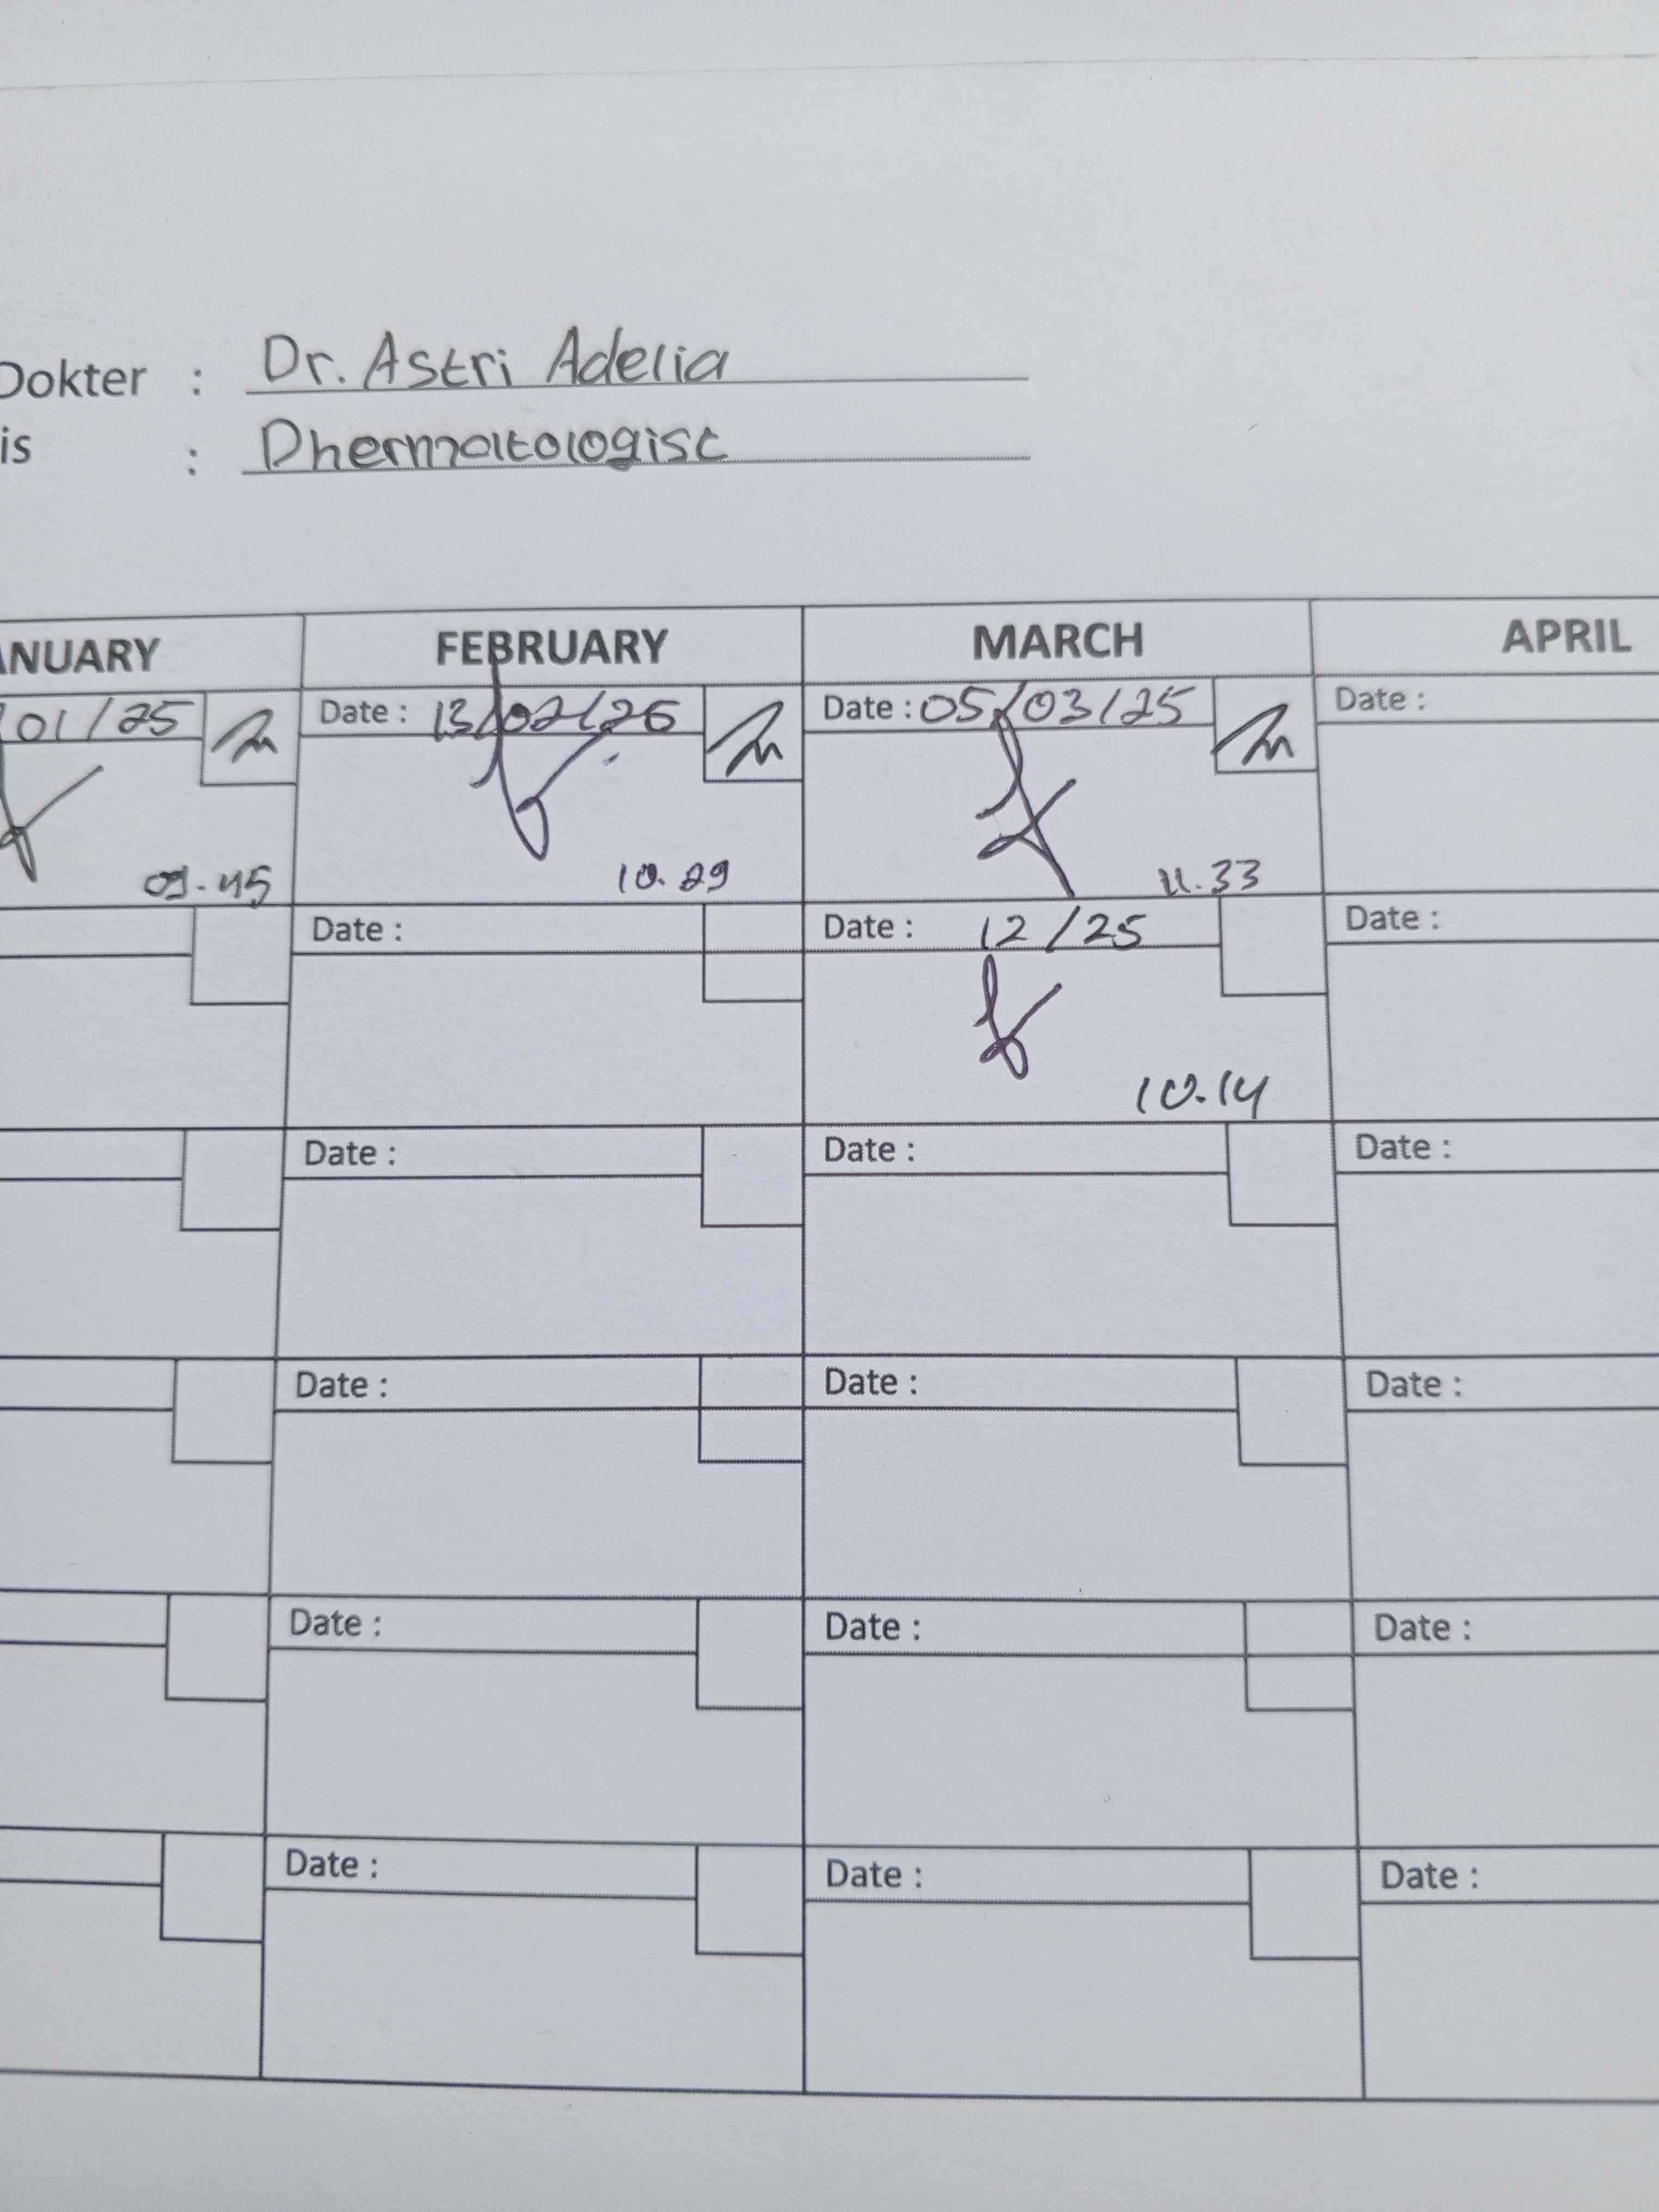 Dokter : Dr. Astri Adelia
is : Dhermatologist
ANUARY FEBRUARY MARCH APRIL
01/25 Date : 13/02/26 Date : 05/03/25 Date :
09.45 10.29 11.33
Date : Date : 12/25 Date :
10.14
Date : Date : Date :
Date : Date : Date :
Date : Date : Date :
Date : Date : Date :